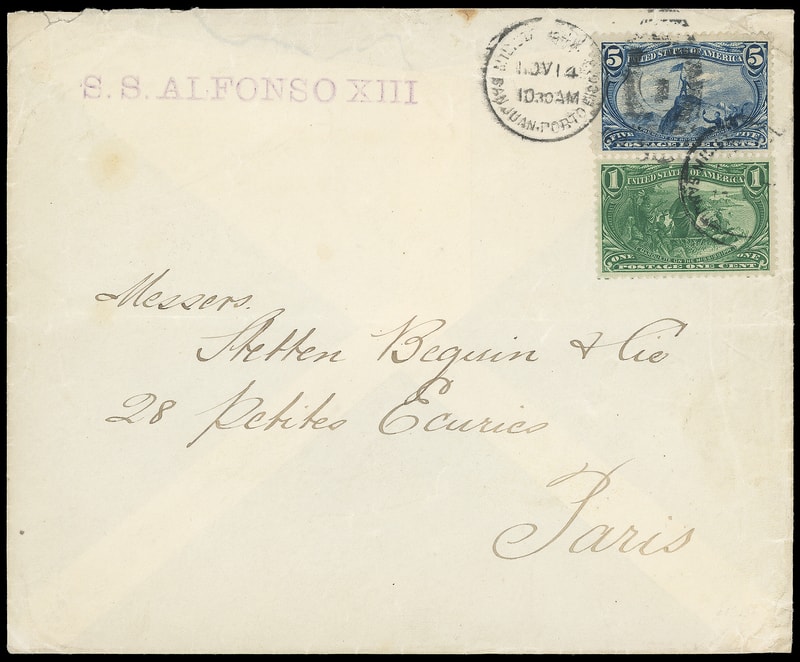 S. S. ALFONSO XIII
NOV 14
10 30 AM
SAN JUAN · PORTO RICO
5 5
UNITED STATES OF AMERICA
FIVE FIVE
POSTAGE FIVE CENTS
1 1
UNITED STATES OF AMERICA
ONE ONE
POSTAGE ONE CENT
Messers.
Stetten Beguin & Cie
28 Petites Ecuries
Paris